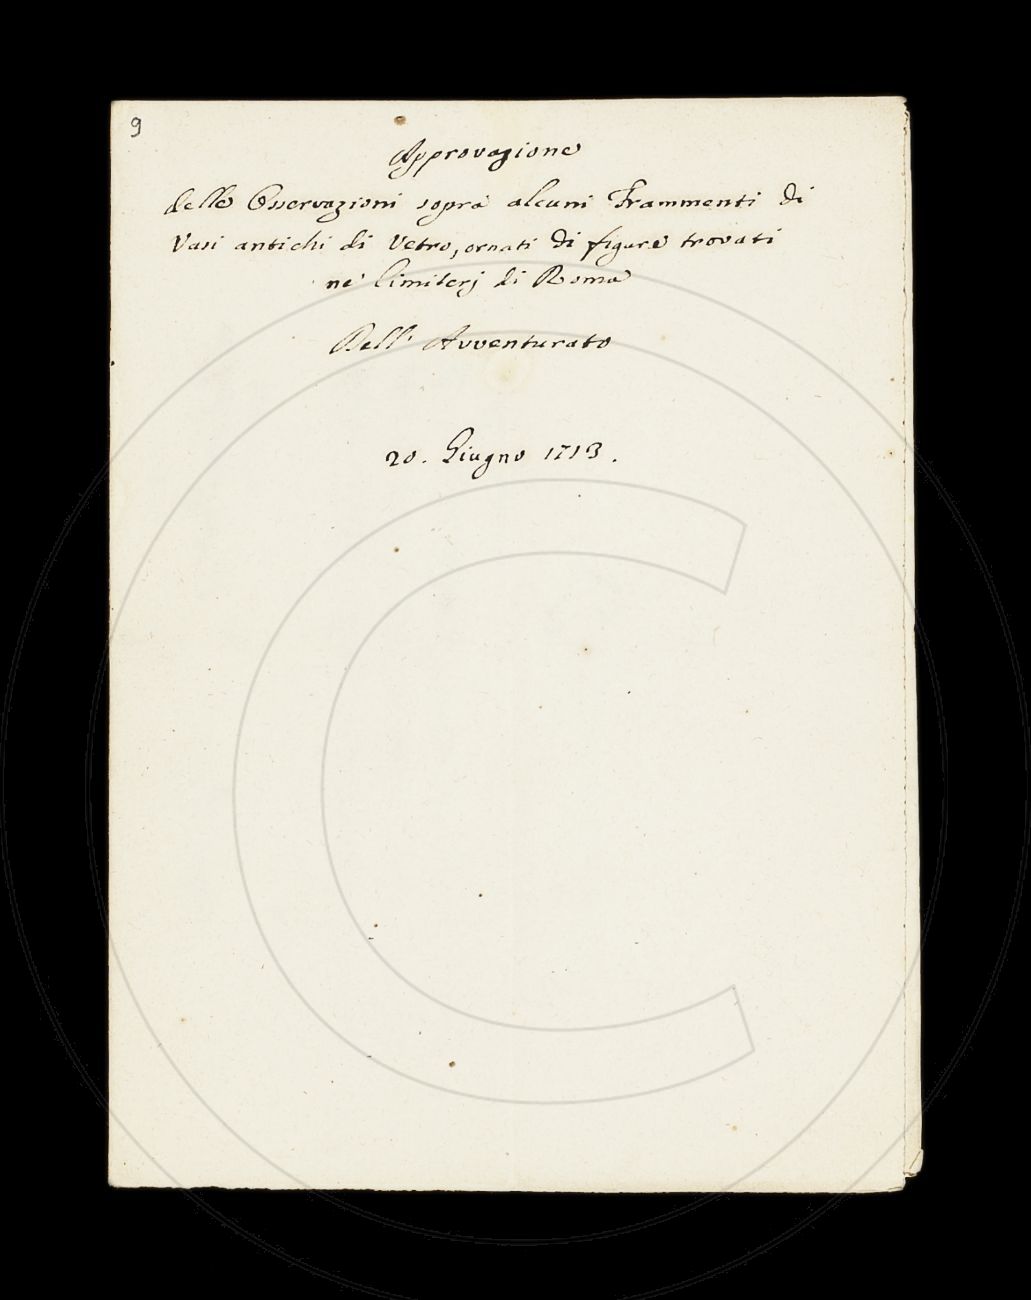 9
Approvazione
delle Osservazioni sopra alcuni Frammenti di
Vasi antichi di Vetro, ornati di figure trovati
ne' Cimiterj di Roma
Dell' Avventurato
20. Giugno 1713.